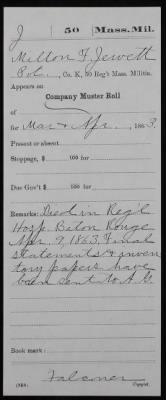 J | 50 | Mass. Mil.
Milton F Jewett
Pvt., Co. K, 50 Reg't Mass. Militia.
Appears on
Company Muster Roll
for Mar & Apr., 1863.
Present or absent
Stoppage, $ 100 for
Due Gov't $ 100 for
Remarks: Died in Reg'l
Hosp. Baton Rouge
Apr. 9, 1863. Final
statements & inven
tory papers have
been sent to A. G.
Book mark:
Falconer
(858) Copyist.